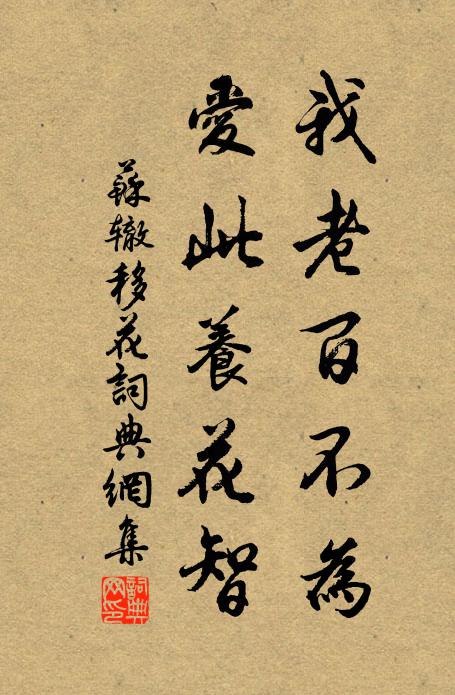 我老百不為
愛此養花智
蘇辙移花詞典網集
詞典网印